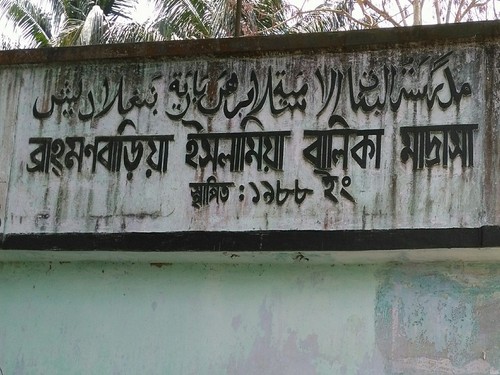 مدرسة البنات الاسلامية لابرهمنبارية بنغلاديش
ব্রাহ্মণবাড়িয়া ইসলামিয়া বালিকা মাদ্রাসা
স্থাপিত : ১৯৮৮ ইং